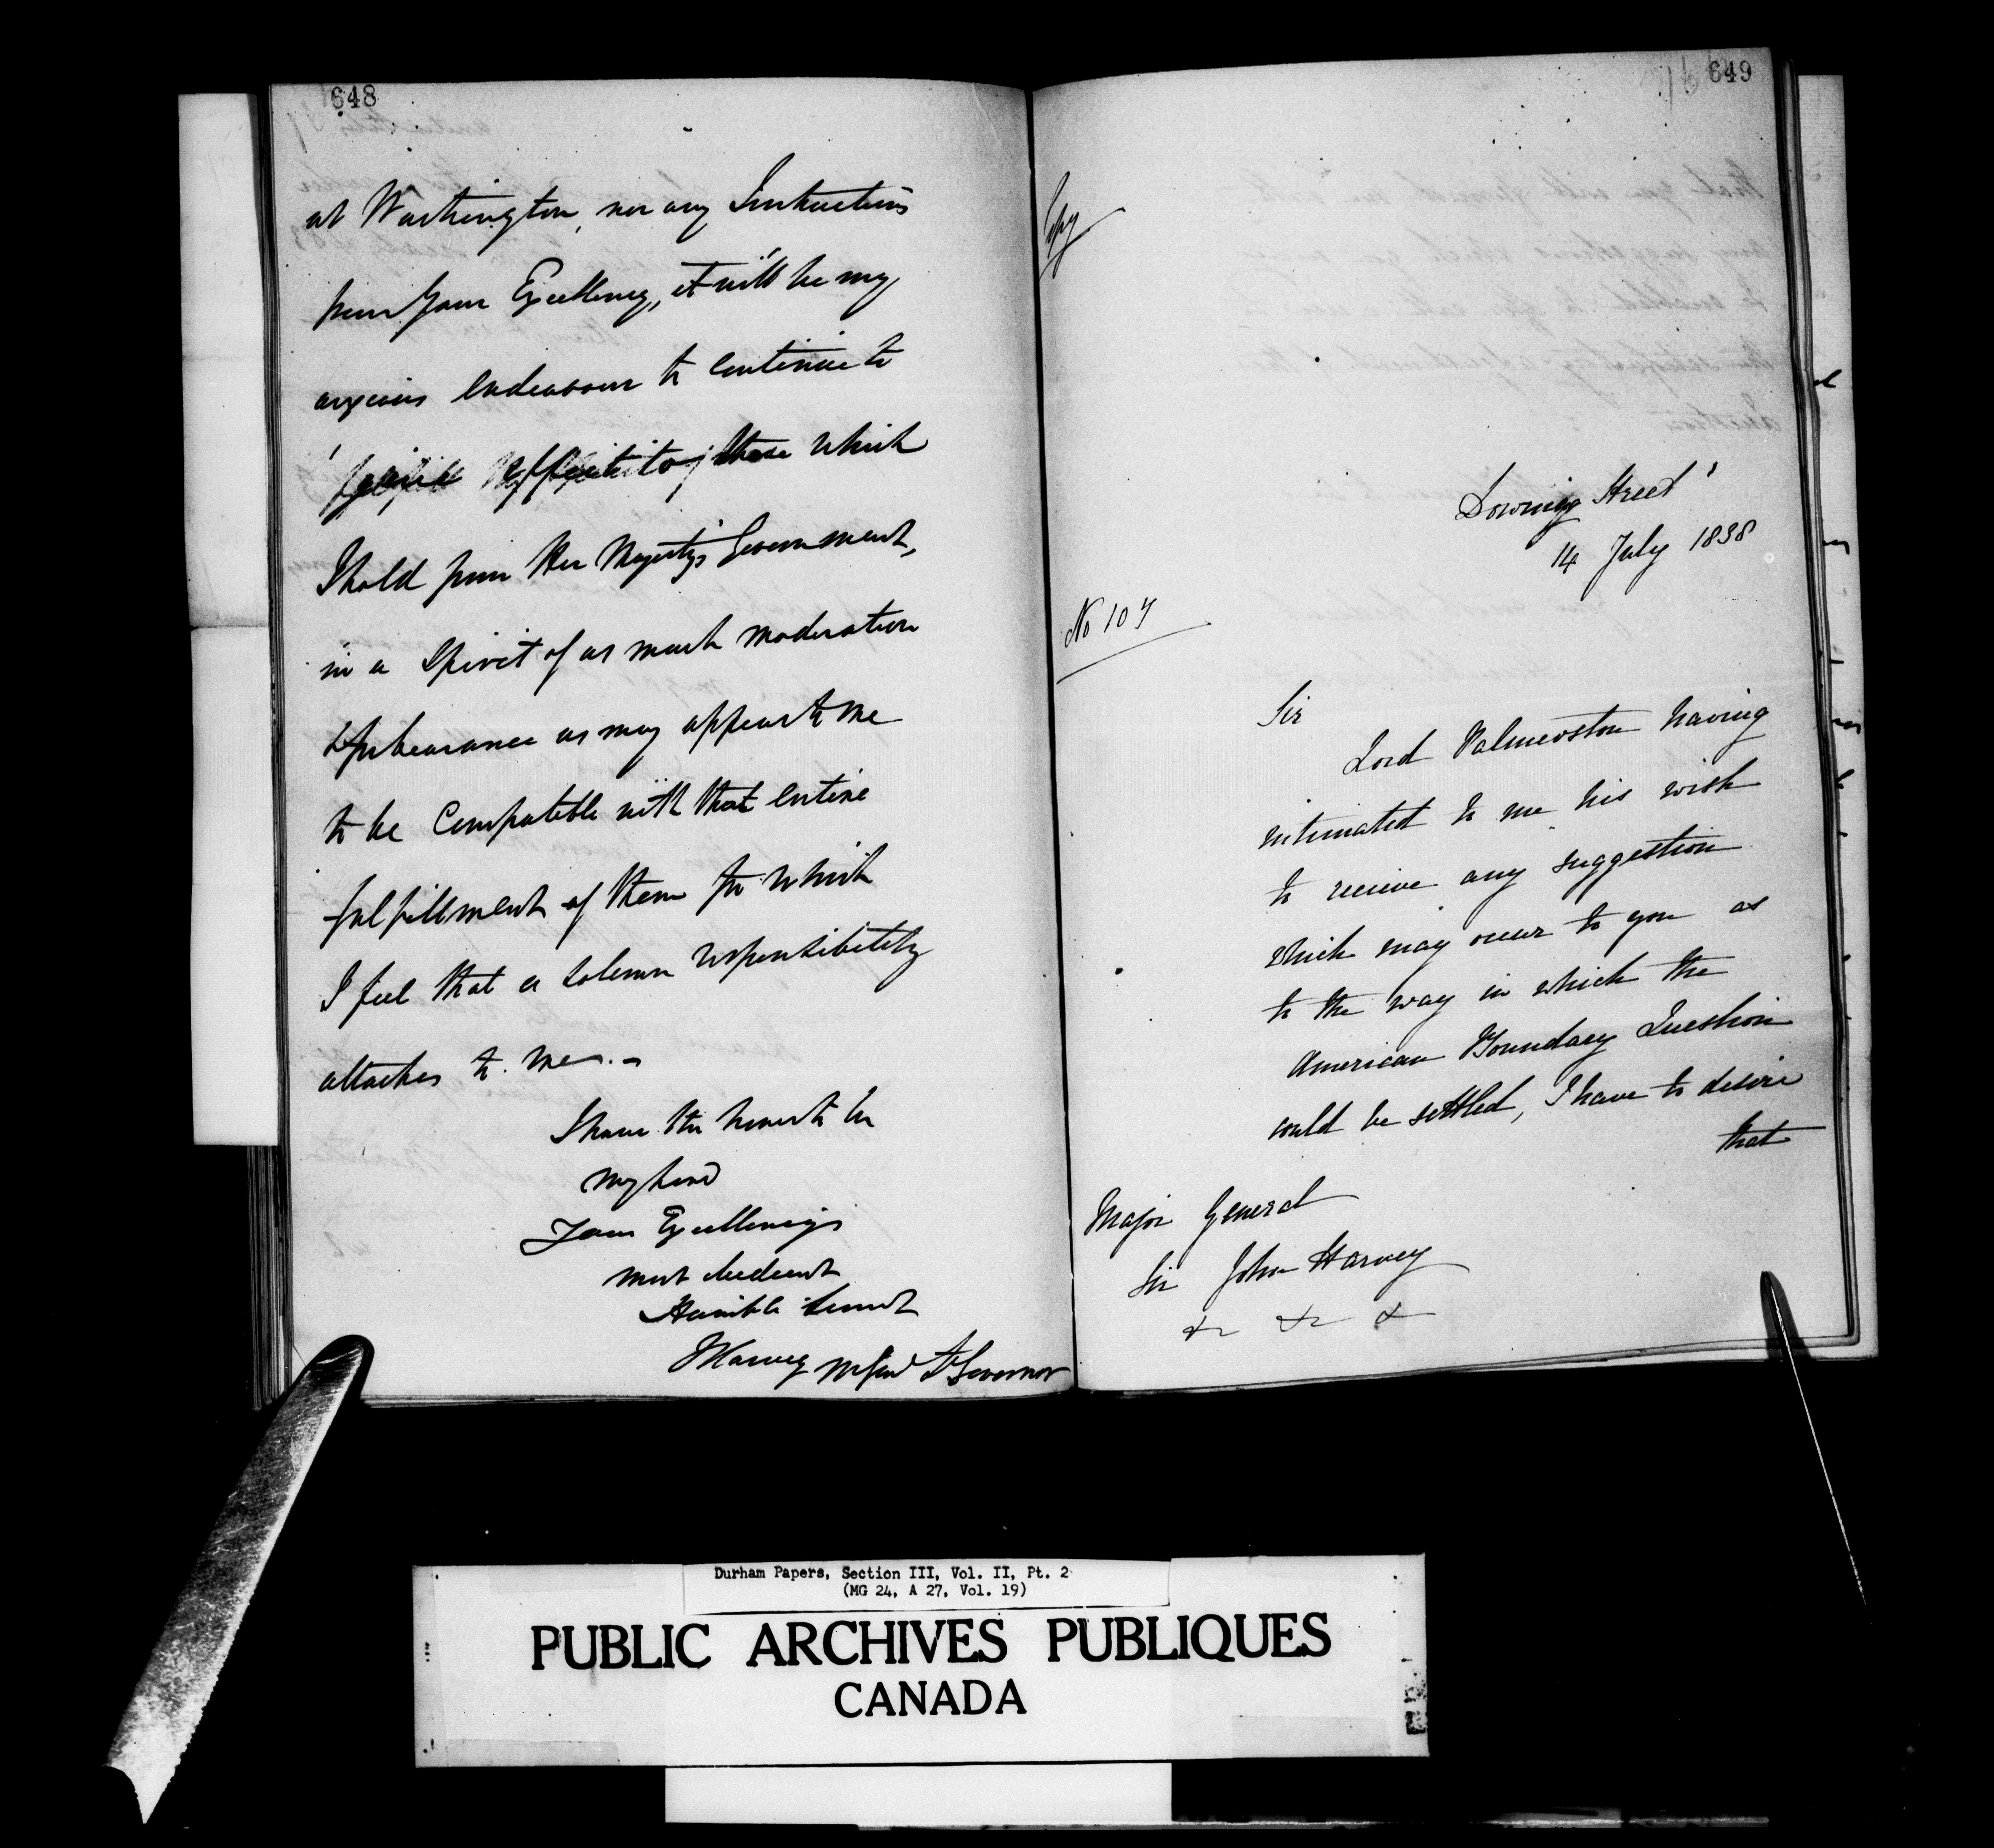 648
at Washington, nor any Instructions
from Your Excellency, it will be my
anxious endeavour to continue to
give effect to those which
I hold from Her Majesty's Government,
in a Spirit of as much moderation
& forbearance as may appear to me
to be Compatible with that entire
fulfillment of them for which
I feel that a solemn responsibility
attaches to me.-
I have the honor to be
my Lord
Your Excellency's
most obedient
Humble Servt
JHarvey MGenl Lt Governor
649
Copy
Downing Street
14 July 1838
No 107
Sir
Lord Palmerston having
intimated to me his wish
to receive any suggestion
which may occur to you as
to the way in which the
American Boundary Question
could be settled, I have to desire
that
Major General
Sir John Harvey
&c &c &c
Durham Papers, Section III, Vol. II, Pt. 2
(MG 24, A 27, Vol. 19)
PUBLIC ARCHIVES PUBLIQUES
CANADA